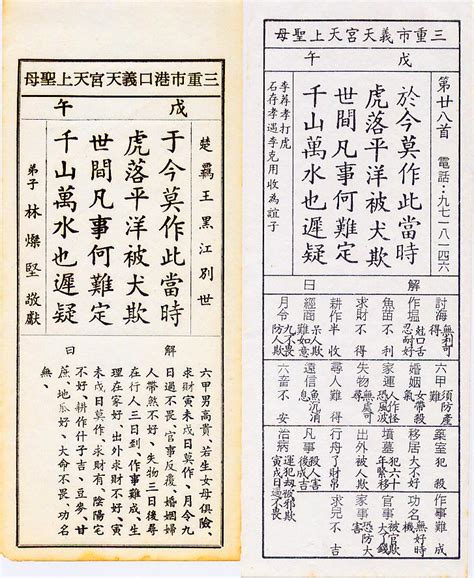 三重市港口義天宮天上聖母
戊午
王黑江別世
于今莫作此當時
虎落平洋被犬欺
世間凡事何難定
千山萬水也遲疑
弟子 林燦堅敬獻
解曰
六甲男高貴，若生女母俱險、
求財寅未戌日莫作、月令九
日過不畏。官事反覆、婚姻婦
人帶煞不好、失物三日後尋
在行人三日到、作事難成，生
理在家好、出外求財不好、寅
未戌日莫作、求財有、陰陽宅
不好、耕作什子吉、豆麥、甘
蔗、地瓜好、大命不畏、功名
無、
三重市義天宮天上聖母
戊午
第廿八首 電話：九七一八一四六
於今莫作此當時
虎落平洋被犬欺
世間凡事何難定
千山萬水也遲疑
孝打虎
石存孝遇李克用收為誼子
解曰
討海 無利可得
作塭 口舌忍耐好
魚苗 不利
求財 不利
耕作 半收
經商 呆人欺難如意
月令 九不畏防人欺
六甲 須防產難
婚姻 女帶殺不好
家運 人作怪恐風波
失物 無處可尋
尋人 難
遠信 魚沉消
六畜 不安
築室 犯殺
移居 不好
墳墓 犯六十年
出外 被人欺
行舟 了財吊
凡事 殺人害後成吉
治病 運犯劫被邪欺寅戌日過不畏
作事 難成
功名 無好時機
官事 被官欺恐防大
求兒 不吉